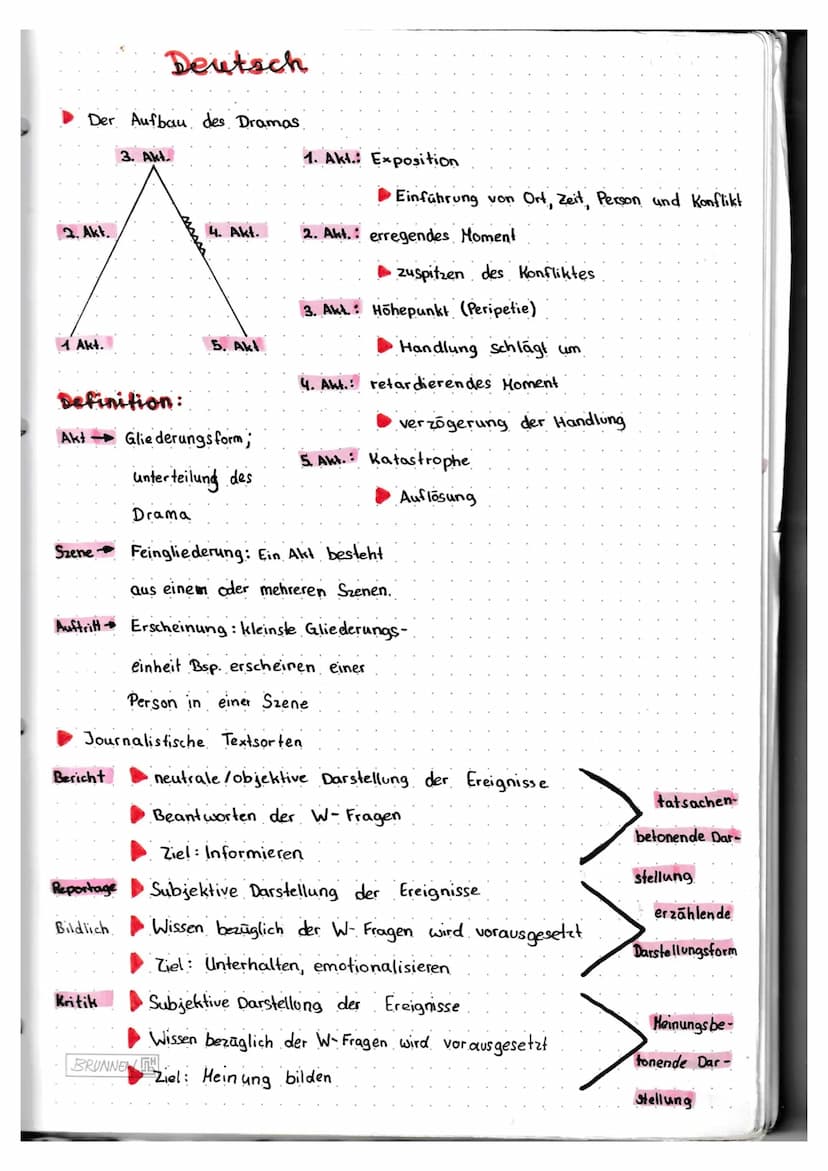 Deutsch
Der Aufbau des Dramas
3. Akt.
2. Akt.
4. Akt.
1 Akt.
5. Akt
1. Akt.: Exposition
Einführung von Ort, Zeit, Person und Konflikt
2. Akt.: erregendes Moment
zuspitzen des Konfliktes
3. Akt.: Höhepunkt (Peripetie)
Handlung schlägt um
4. Akt.: retardierendes Moment
verzögerung der Handlung
5. Akt.: Katastrophe
Auflösung
Definition:
Akt → Gliederungsform;
unterteilung des
Drama
Szene → Feingliederung: Ein Akt besteht
aus einem oder mehreren Szenen.
Auftritt → Erscheinung: kleinste Gliederungs-
einheit Bsp. erscheinen einer
Person in einer Szene
Journalistische Textsorten
Bericht neutrale/objektive Darstellung der Ereignisse
Beantworten der W-Fragen
Ziel: Informieren
tatsachen-
betonende Dar-
stellung
Reportage Subjektive Darstellung der Ereignisse
Bildlich Wissen bezüglich der W-Fragen wird vorausgesetzt
Ziel: Unterhalten, emotionalisieren
erzählende
Darstellungsform
Kritik Subjektive Darstellung der Ereignisse
Wissen bezüglich der W-Fragen wird vorausgesetzt
Ziel: Meinung bilden
Meinungsbe-
tonende Dar-
stellung
BRUNNEN